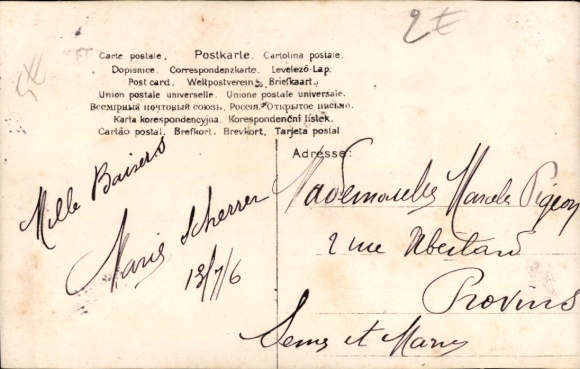 2 €
Carte postale. Postkarte. Cartolina postale.
Dopisnice. Correspondenzkarte. Levelező-Lap.
Post card. Weltpostverein. Briefkaart.
Union postale universelle. Unione postale universale.
Всемірный почтовый союзъ. Россія. Открытое письмо.
Karta korespondencyjna. Korespondenční lístek.
Cartão postal. Brefkort. Brevkort. Tarjeta postal
Adresse:
Mille Baisers
Marie Scherrer
13/7/6
Mademoiselle Marcelle Pigeon
2 rue
Provins
Seine et Marne